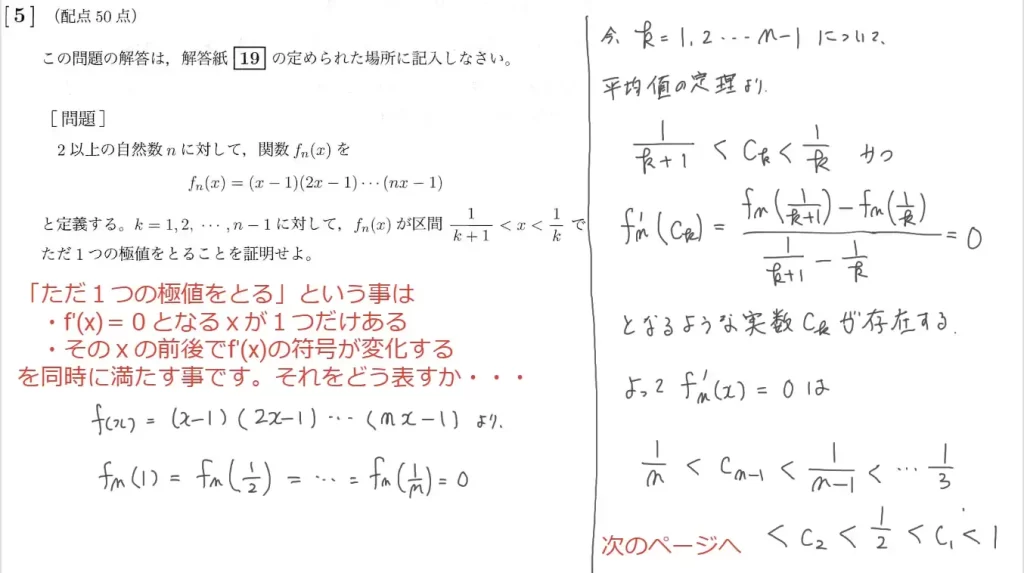 [5] (配点 50 点)
この問題の解答は,解答紙 19 の定められた場所に記入しなさい。
[問題]
2 以上の自然数 n に対して,関数 fn(x) を
fn(x) = (x − 1)(2x − 1) ⋯ (nx − 1)
と定義する。k = 1, 2, ⋯, n − 1 に対して,fn(x) が区間 1/(k+1) < x < 1/k で
ただ 1 つの極値をとることを証明せよ。
「ただ1つの極値をとる」という事は
・f'(x)=0となるxが1つだけある
・そのxの前後でf'(x)の符号が変化する
を同時に満たす事です。それをどう表すか・・・
f(x) = (x−1)(2x−1) ⋯ (nx−1) より.
fn(1) = fn(1/2) = ⋯ = fn(1/n) = 0
今 k = 1, 2 ⋯ n−1 について、
平均値の定理より.
1/(k+1) < Ck < 1/k かつ
fn'(Ck) = (fn(1/(k+1)) − fn(1/k)) / (1/(k+1) − 1/k) = 0
となるような実数 Ck が存在する.
よって fn'(x) = 0 は
1/n < Cn−1 < 1/(n−1) < ⋯ 1/3
< C2 < 1/2 < C1 < 1
次のページへ